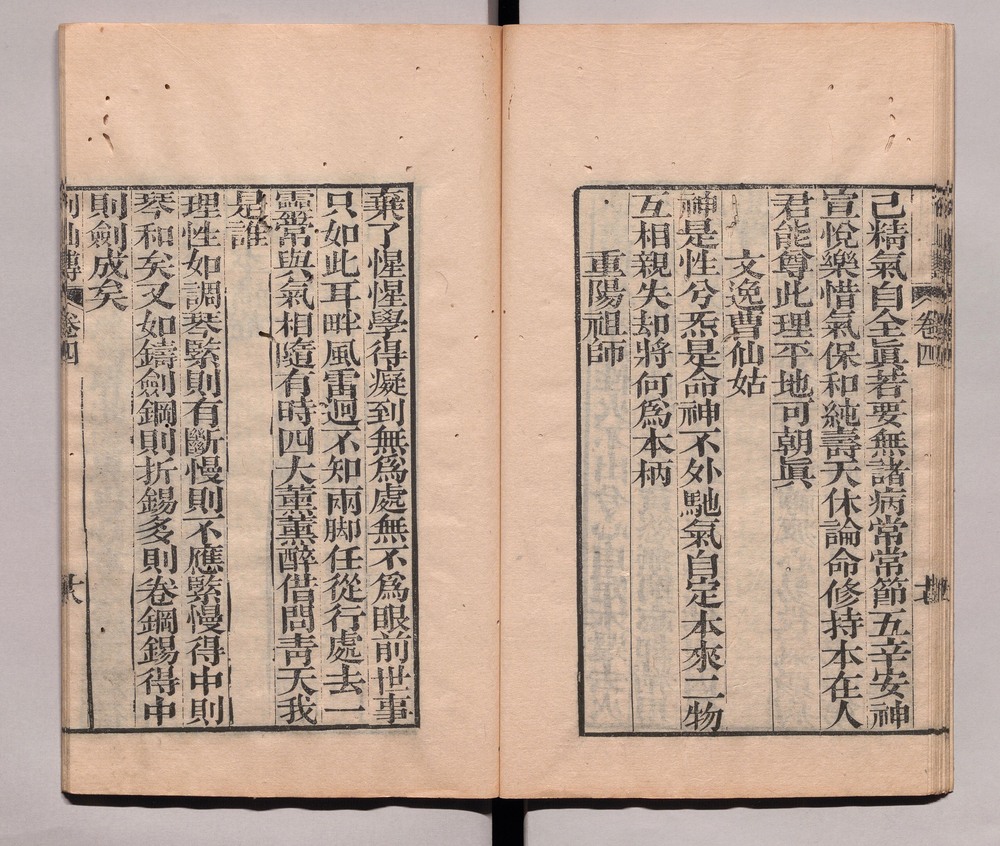 己精氣自全眞若要無諸病常常節五辛安神
宣悅樂惜氣保和純壽夭休論命修持本在人
君能尊此理平地可朝眞
文逸曹仙姑
神是性兮炁是命神不外馳氣自定本來二物
互相親失却將何爲本柄
重陽祖師
棄了惺惺學得癡到無爲處無不爲眼前世事
只如此耳畔風雷迥不知兩脚任從行處去一
靈常與氣相隨有時四大薰薰醉借問靑天我
是誰
理性如調琴緊則有斷慢則不應緊慢得中則
琴和矣又如鑄劍鋼則折錫多則卷鋼錫得中
則劍成矣
列仙傳 卷四